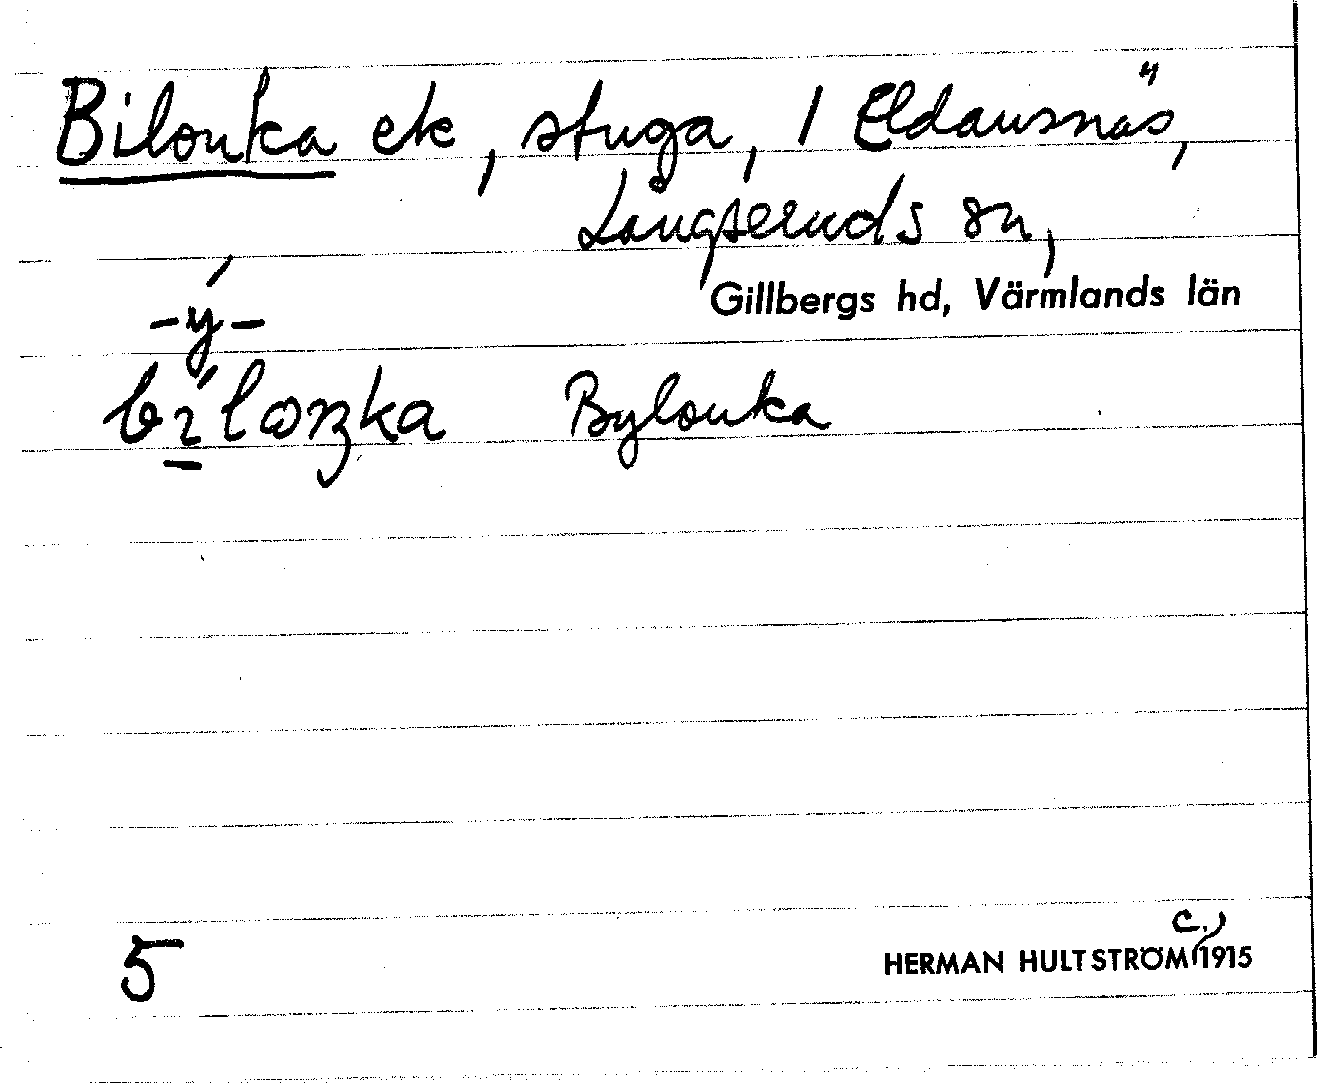 Bilonka ek, stuga, 1 Eldansnäs,
Långseruds sn,
Gillbergs hd, Värmlands län
-ý-
Bylonka
5
c.
HERMAN HULTSTRÖM 1915